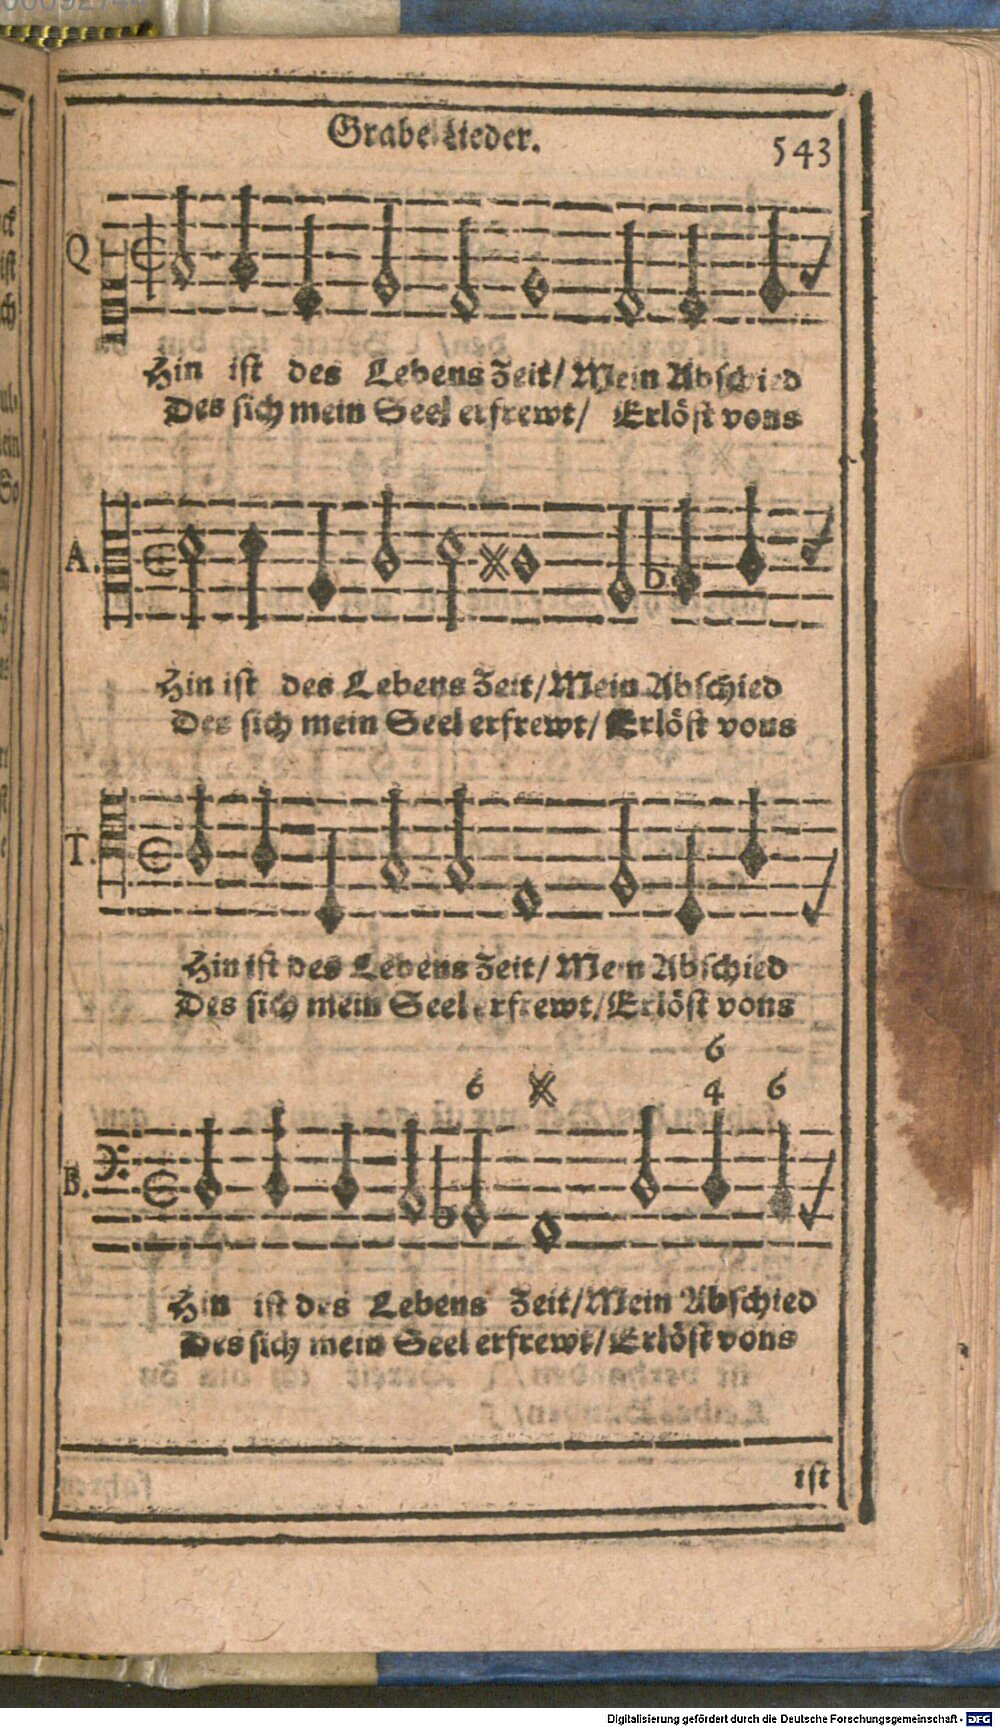 Grabe Lieder.
543
Q
Hin ist des Lebens Zeit/ Mein Abschied
Des sich mein Seel erfrewt/ Erlöst vons
A.
Hin ist des Lebens Zeit/ Mein Abschied
Des sich mein Seel erfrewt/ Erlöst vons
T.
Hin ist des Lebens Zeit/ Mein Abschied
Des sich mein Seel erfrewt/ Erlöst vons
6
6 4 6
B.
Hin ist des Lebens Zeit/ Mein Abschied
Des sich mein Seel erfrewt/ Erlöst vons
ist
Digitalisierung gefördert durch die Deutsche Forschungsgemeinschaft - DFG